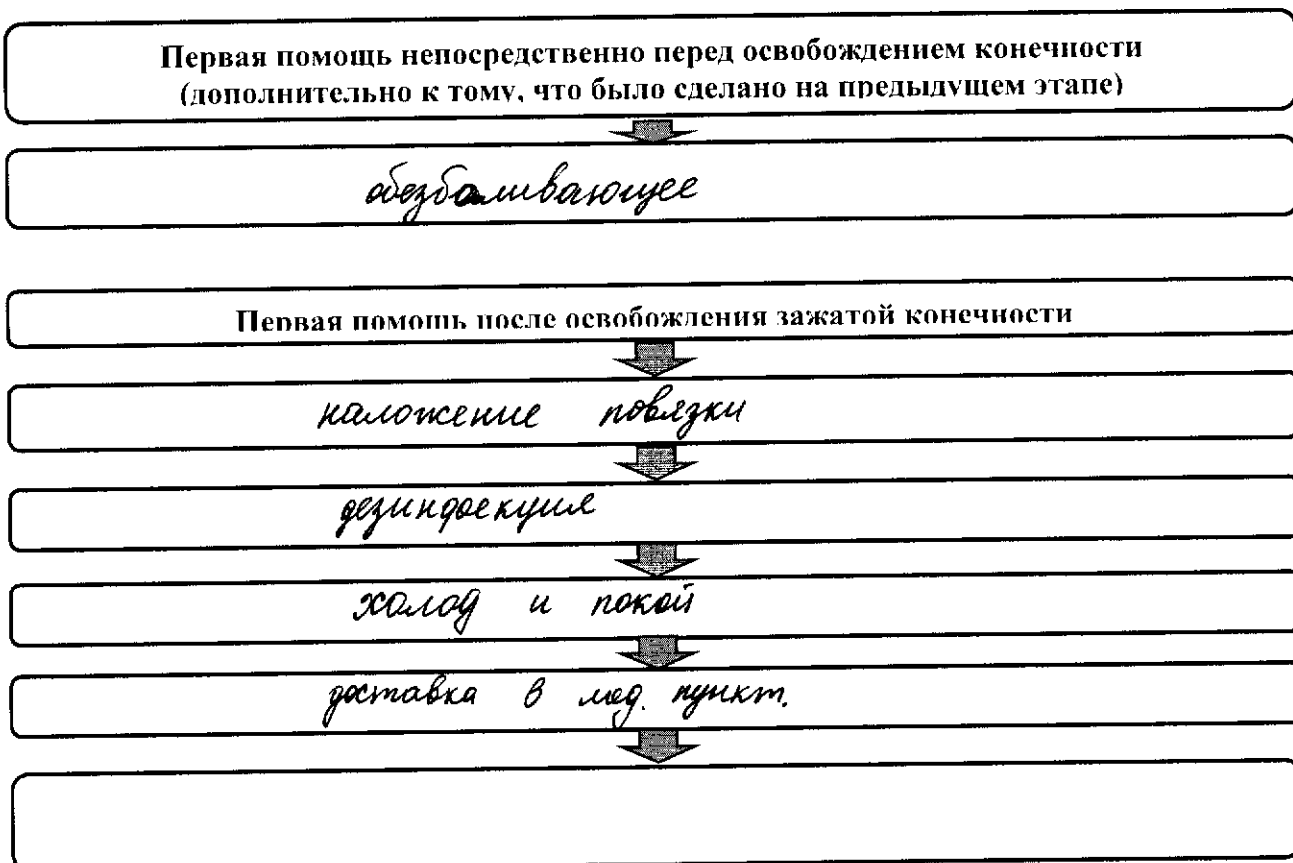 Первая помощь непосредственно перед освобождением конечности
(дополнительно к тому, что было сделано на предыдущем этапе)
обезбаливающее
Первая помощь после освобождения зажатой конечности
наложение повязки
дезинфекция
холод и покой
доставка в мед. пункт.